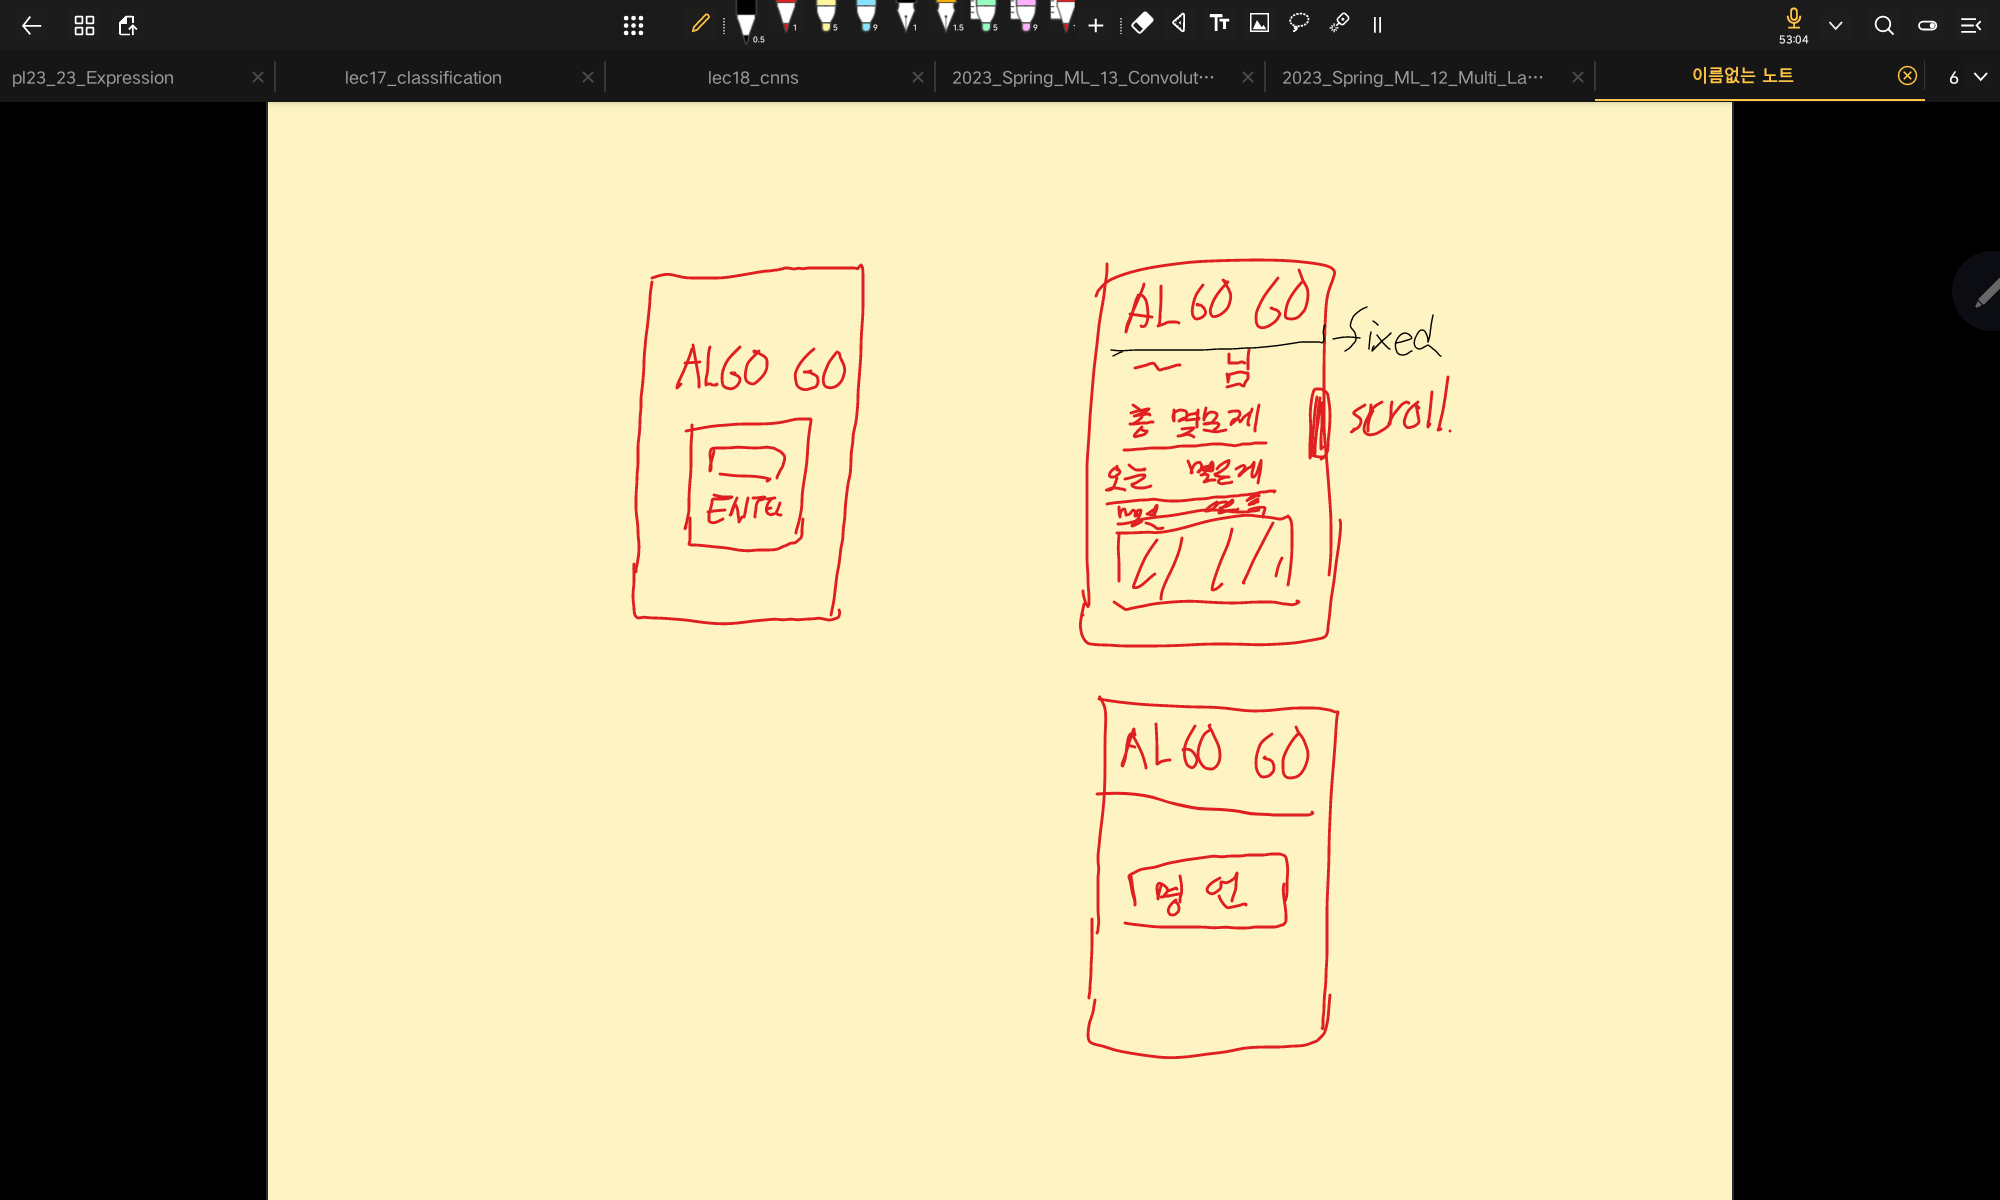 0.5 1 5 9 1 1.5 5 9 1
Tт
53:04
pl23_23_Expression
lec17_classification
lec18_cnns
2023_Spring_ML_13_Convolut…
2023_Spring_ML_12_Multi_La…
이름없는 노트
6
ALGO GO
ENTER
ALGO GO
fixed
~ 님
scroll.
총 몇문제
오늘 몇문제
ALGO GO
명언